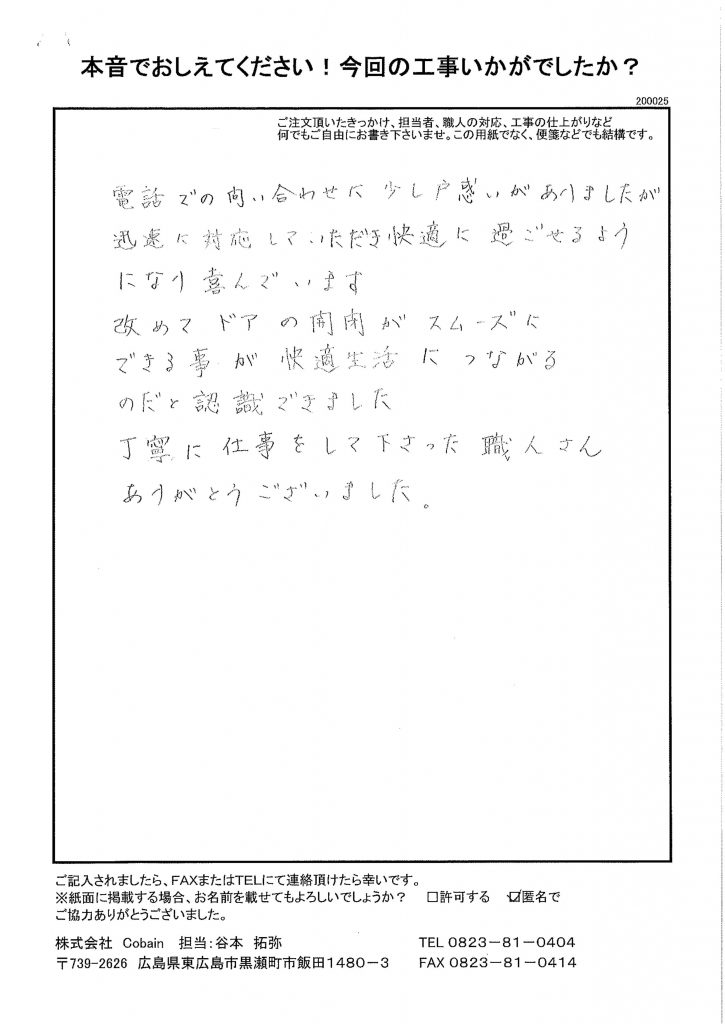 本音でおしえてください！今回の工事いかがでしたか？
200025
ご注文頂いたきっかけ、担当者、職人の対応、工事の仕上がりなど
何でもご自由にお書き下さいませ。この用紙でなく、便箋などでも結構です。
電話での問い合わせに少し戸惑いがありましたが
迅速に対応していただき快適に過ごせるよう
になり喜んでいます
改めてドアの開閉がスムーズに
できる事が快適生活につながる
のだと認識できました
丁寧に仕事をして下さった職人さん
ありがとうございました。
ご記入されましたら、FAXまたはTELにて連絡頂けたら幸いです。
※紙面に掲載する場合、お名前を載せてもよろしいでしょうか？　□許可する　☑匿名で
ご協力ありがとうございました。
株式会社　Cobain　担当：谷本　拓弥　TEL 0823－81－0404
〒739-2626　広島県東広島市黒瀬町市飯田1480－3　FAX 0823－81－0414